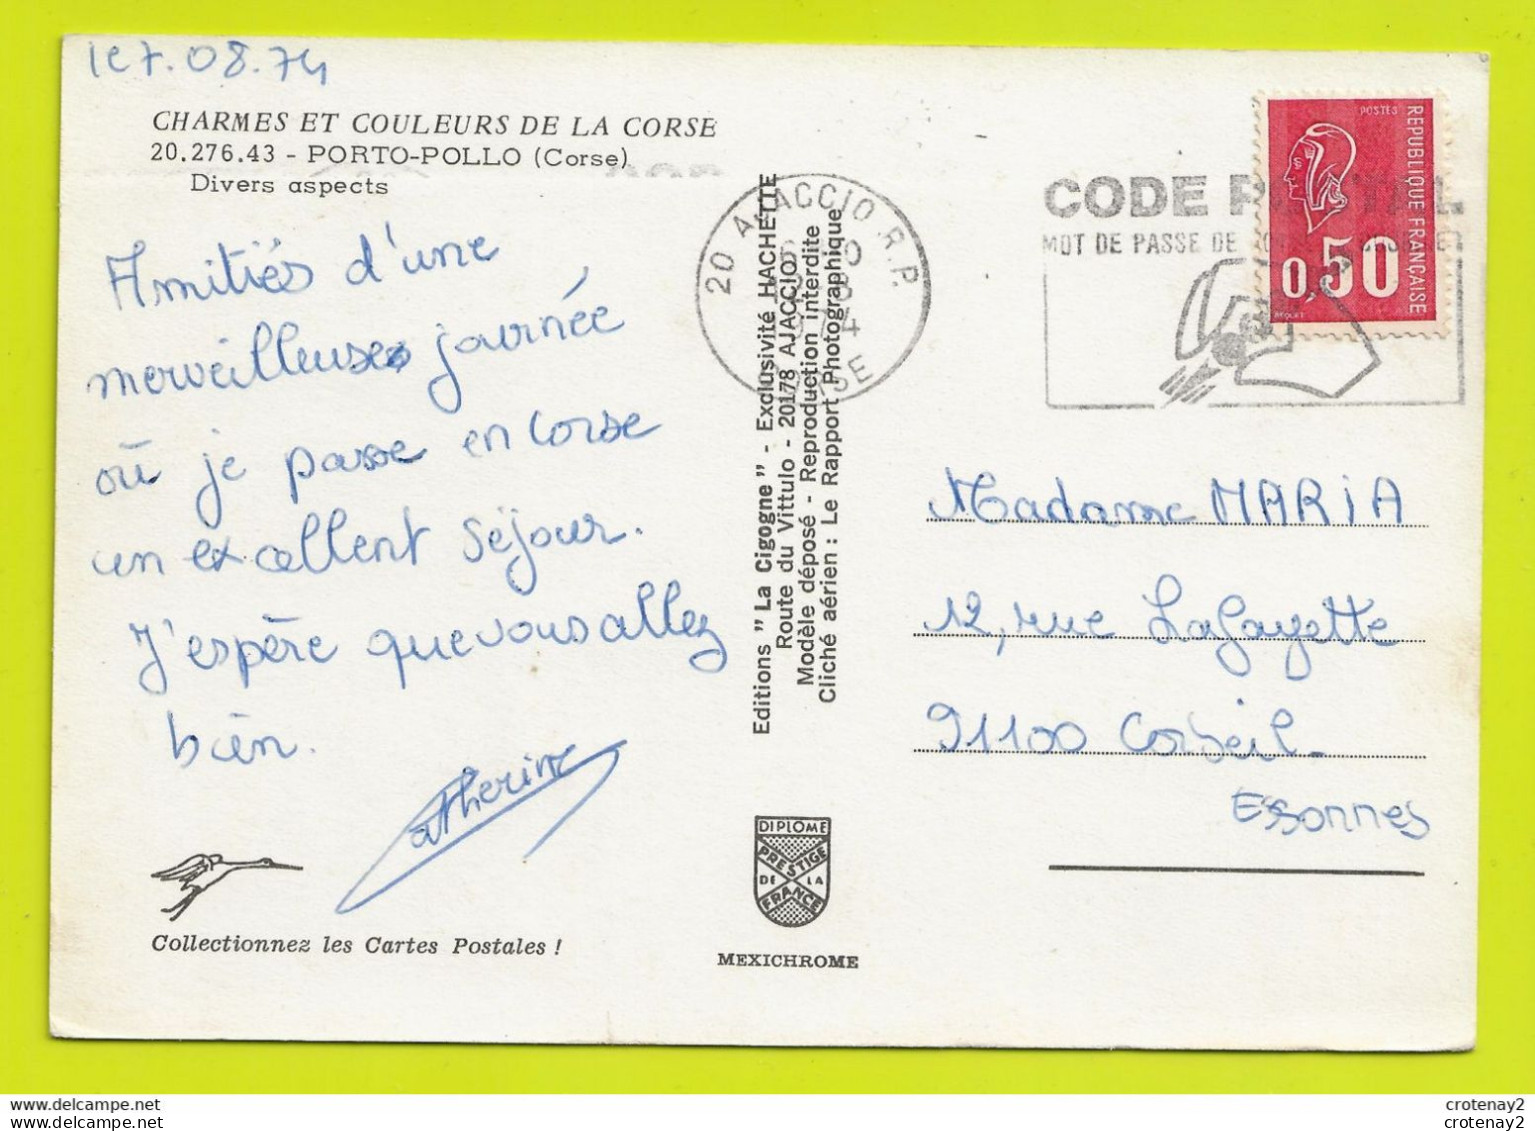 le 7.08.74
CHARMES ET COULEURS DE LA CORSE
20.276.43 - PORTO-POLLO (Corse)
Divers aspects
Amitiés d'une
merveilleuse journée
où je passe en Corse
un excellent séjour.
J'espère que vous allez
bien.
Catherine
Collectionnez les Cartes Postales !
Editions "La Cigogne" - Exclusivité HACHETTE
Route du Vittulo - 20178 AJACCIO
Modèle déposé - Reproduction interdite
Cliché aérien : Le Rapport Photographique
DIPLOME
PRESTIGE
DE LA
FRANCE
MEXICHROME
20 AJACCIO R.P.
1974
CORSE
CODE POSTAL
MOT DE PASSE DE
POSTES
REPUBLIQUE FRANÇAISE
0,50
Madame MARIA
12, rue Lafayette
91100 Corbeil-
Essonnes
crotenay2
crotenay2